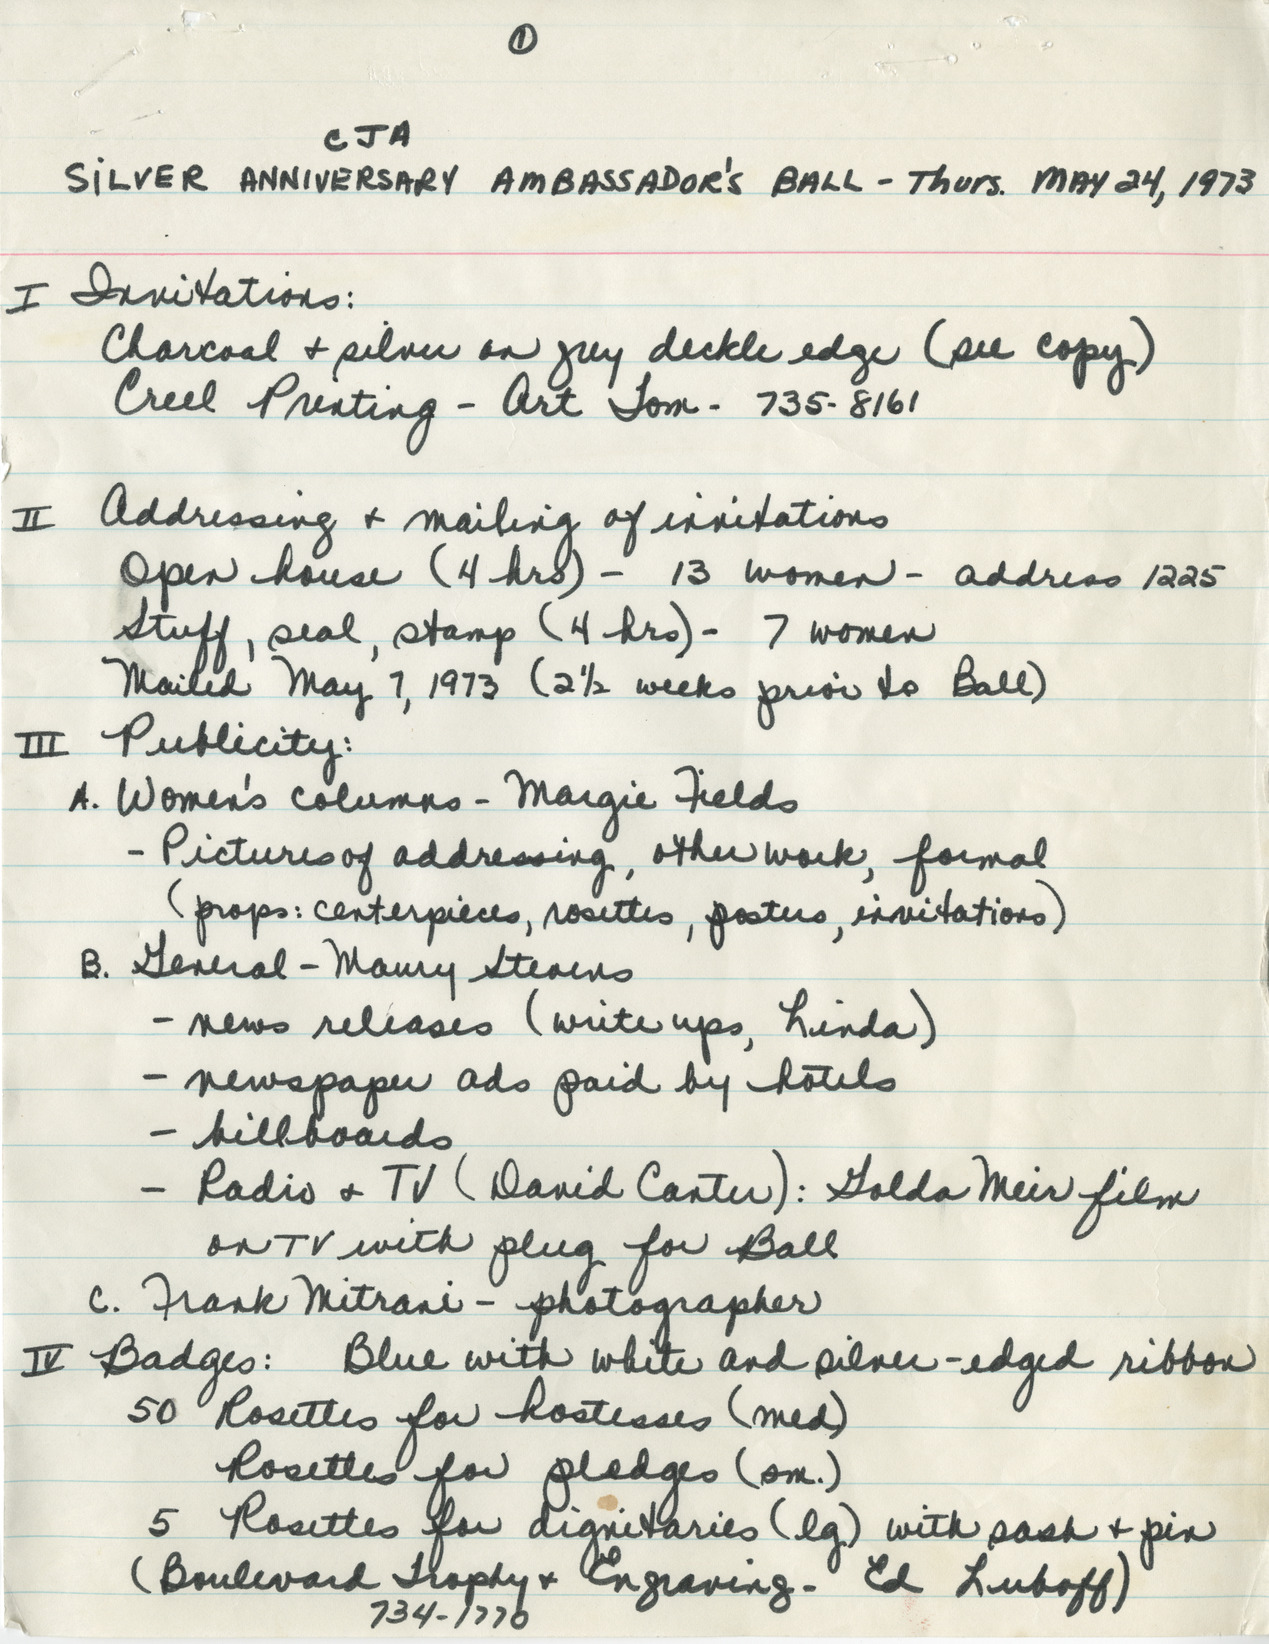 ①
CJA
SILVER ANNIVERSARY AMBASSADOR'S BALL - Thurs. MAY 24, 1973
I Invitations:
Charcoal + silver on grey deckle edge (see copy)
Creel Printing - Art Tom - 735-8161
II Addressing + mailing of invitations
Open house (4 hrs) - 13 women - address 1225
Stuff, seal, stamp (4 hrs) - 7 women
Mailed May 7, 1973 (2½ weeks prior to Ball)
III Publicity:
A. Women's columns - Margie Fields
- Pictures of addressing, other work, formal
(props: centerpieces, rosettes, posters, invitations)
B. General - Maury Stevens
- news releases (write ups, Linda)
- newspaper ads paid by hotels
- billboards
- Radio + TV (David Canter): Golda Meir film
on TV with plug for Ball
C. Frank Mitrani - photographer
IV Badges: Blue with white and silver-edged ribbon
50 Rosettes for hostesses (med)
Rosettes for pledges (sm.)
5 Rosettes for dignitaries (lg) with sash + pin
(Boulevard Trophy + Engraving - Ed Luboff)
734-1770